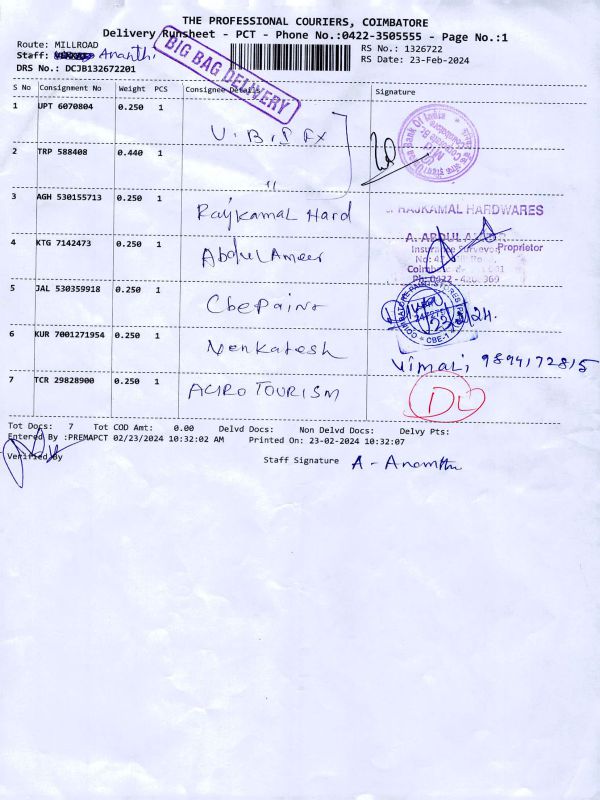 THE PROFESSIONAL COURIERS, COIMBATORE
Delivery Runsheet - PCT - Phone No.:0422-3505555 - Page No.:1
Route: MILLROAD
RS No.: 1326722
Staff: Ananthi
RS Date: 23-Feb-2024
DRS No.: DCJB132672201
BIG BAG DELIVERY
S No Consignment No Weight PCS Consignee Details Signature
1 UPT 6070804 0.250 1
2 TRP 588408 0.440 1 "
3 AGH 530155713 0.250 1 Rajkamal Hard RAJKAMAL HARDWARES
Proprietor
4 KTG 7142473 0.250 1 Abdul Ameer A. ABDUL
Insurance Surveyor
5 JAL 530359918 0.250 1 Cbe Paint
CBE-1
6 KUR 7001271954 0.250 1 Venkatesh Vimal, 9894172815
7 TCR 29828900 0.250 1 AGRO TOURISM DL
Tot Docs: 7 Tot COD Amt: 0.00 Delvd Docs: Non Delvd Docs: Delvy Pts:
Entered By :PREMAPCT 02/23/2024 10:32:02 AM Printed On: 23-02-2024 10:32:07
Verified By Staff Signature A-Ananthi